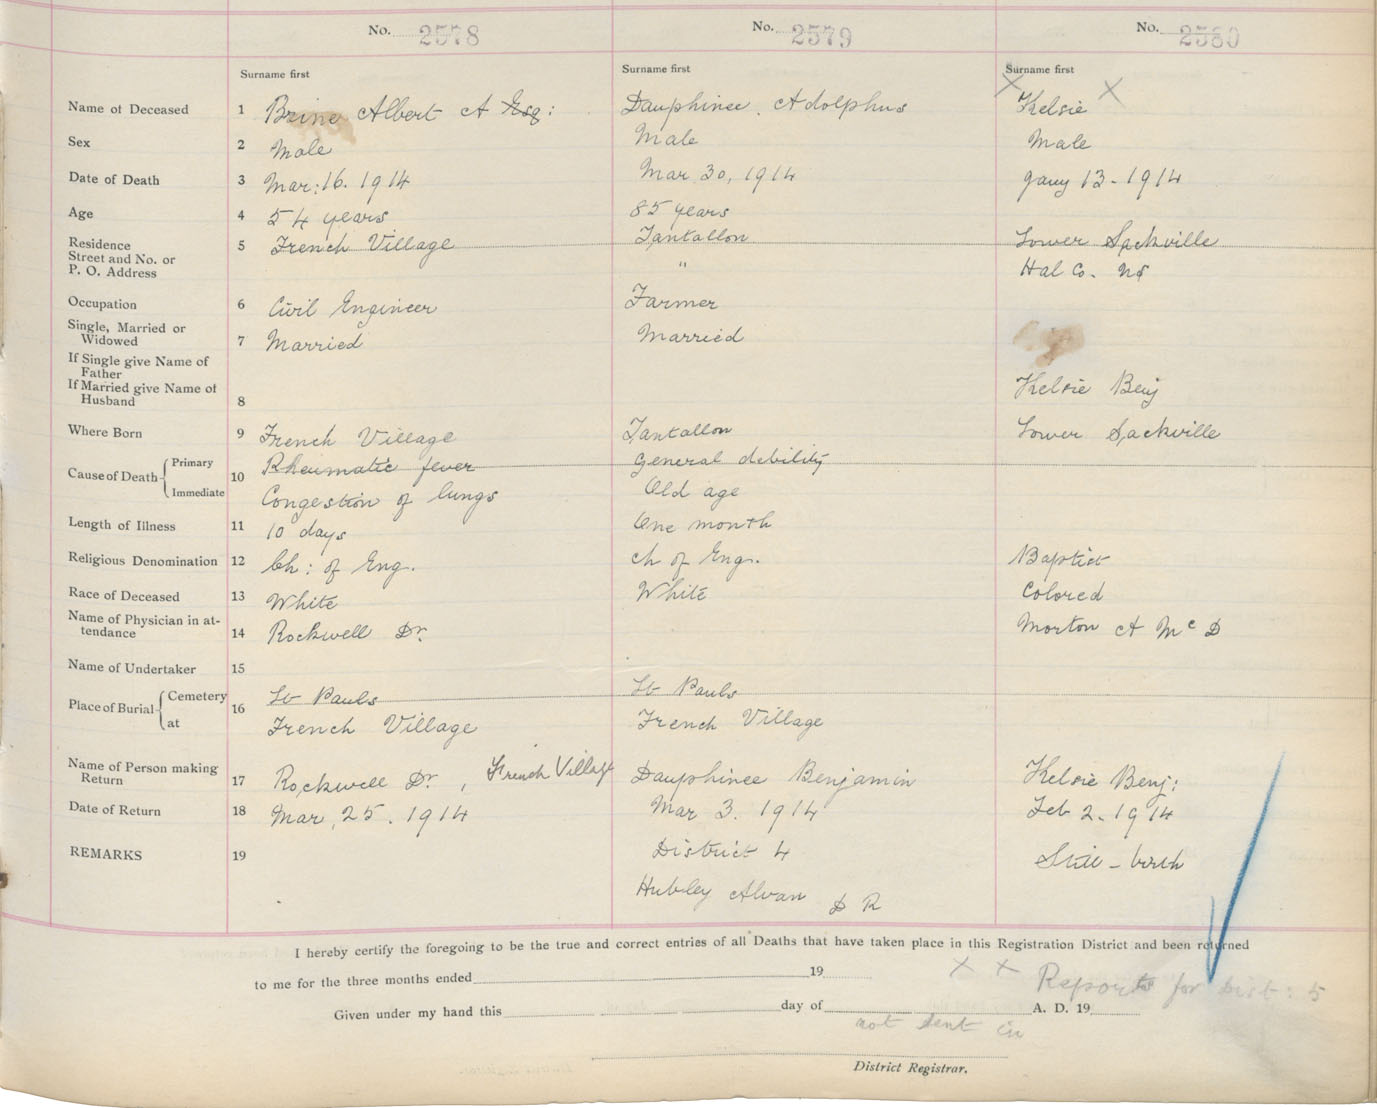 No. 2578 No. 2579 No. 2580
Surname first Surname first Surname first
Name of Deceased 1 Brine Albert A Esq: Dauphinee, Adolphus Kelsie
Sex 2 Male Male Male
Date of Death 3 Mar: 16. 1914 Mar 30, 1914 Jany 13 - 1914
Age 4 54 years 85 years
Residence 5 French Village Tantallon Lower Sackville
Street and No. or
P. O. Address " Hal Co. NS
Occupation 6 Civil Engineer Farmer
Single, Married or
Widowed 7 Married Married
If Single give Name of
Father
If Married give Name of Kelsie Benj
Husband 8
Where Born 9 French Village Tantallon Lower Sackville
Cause of Death Primary 10 Rheumatic fever General debility
Immediate Congestion of lungs Old age
Length of Illness 11 10 days One month
Religious Denomination 12 Ch: of Eng. Ch of Eng. Baptist
Race of Deceased 13 White White Colored
Name of Physician in at-
tendance 14 Rockwell Dr. Morton A McD
Name of Undertaker 15
Place of Burial Cemetery 16 St Pauls St Pauls
at French Village French Village
Name of Person making
Return 17 Rockwell Dr., French Village Dauphinee Benjamin Kelsie Benj:
Date of Return 18 Mar, 25. 1914 Mar 3. 1914 Feb 2. 1914
REMARKS 19 District 4 Still-birth
Hubley Alvan D R
I hereby certify the foregoing to be the true and correct entries of all Deaths that have taken place in this Registration District and been returned
to me for the three months ended 19 X X Reports for Dist: 5
Given under my hand this day of A. D. 19
not sent in
District Registrar.